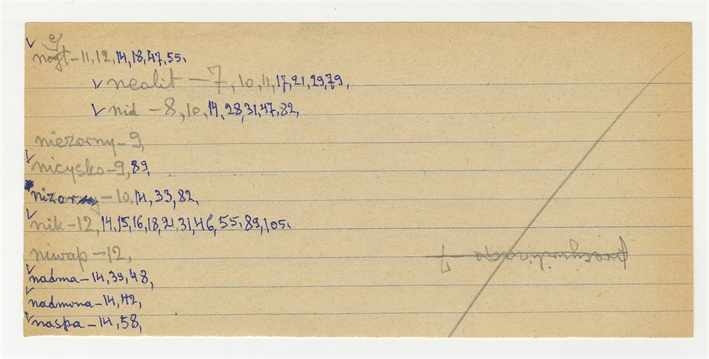 nogt-11,12,14,18,47,55,
✓ neolit -7, 10, 11, 17, 21, 29, 79,
✓ nid -8, 10, 14, 28, 31, 47, 82,
niezorny-9,
nicysko-9, 89,
nizor -10, 14, 33, 82,
nik-12, 14, 15, 16, 18, 21, 31, 46, 55, 89, 105,
niwap-12,
nadma-14, 39, 48,
nadmona-14, 42,
naspa-14, 58,